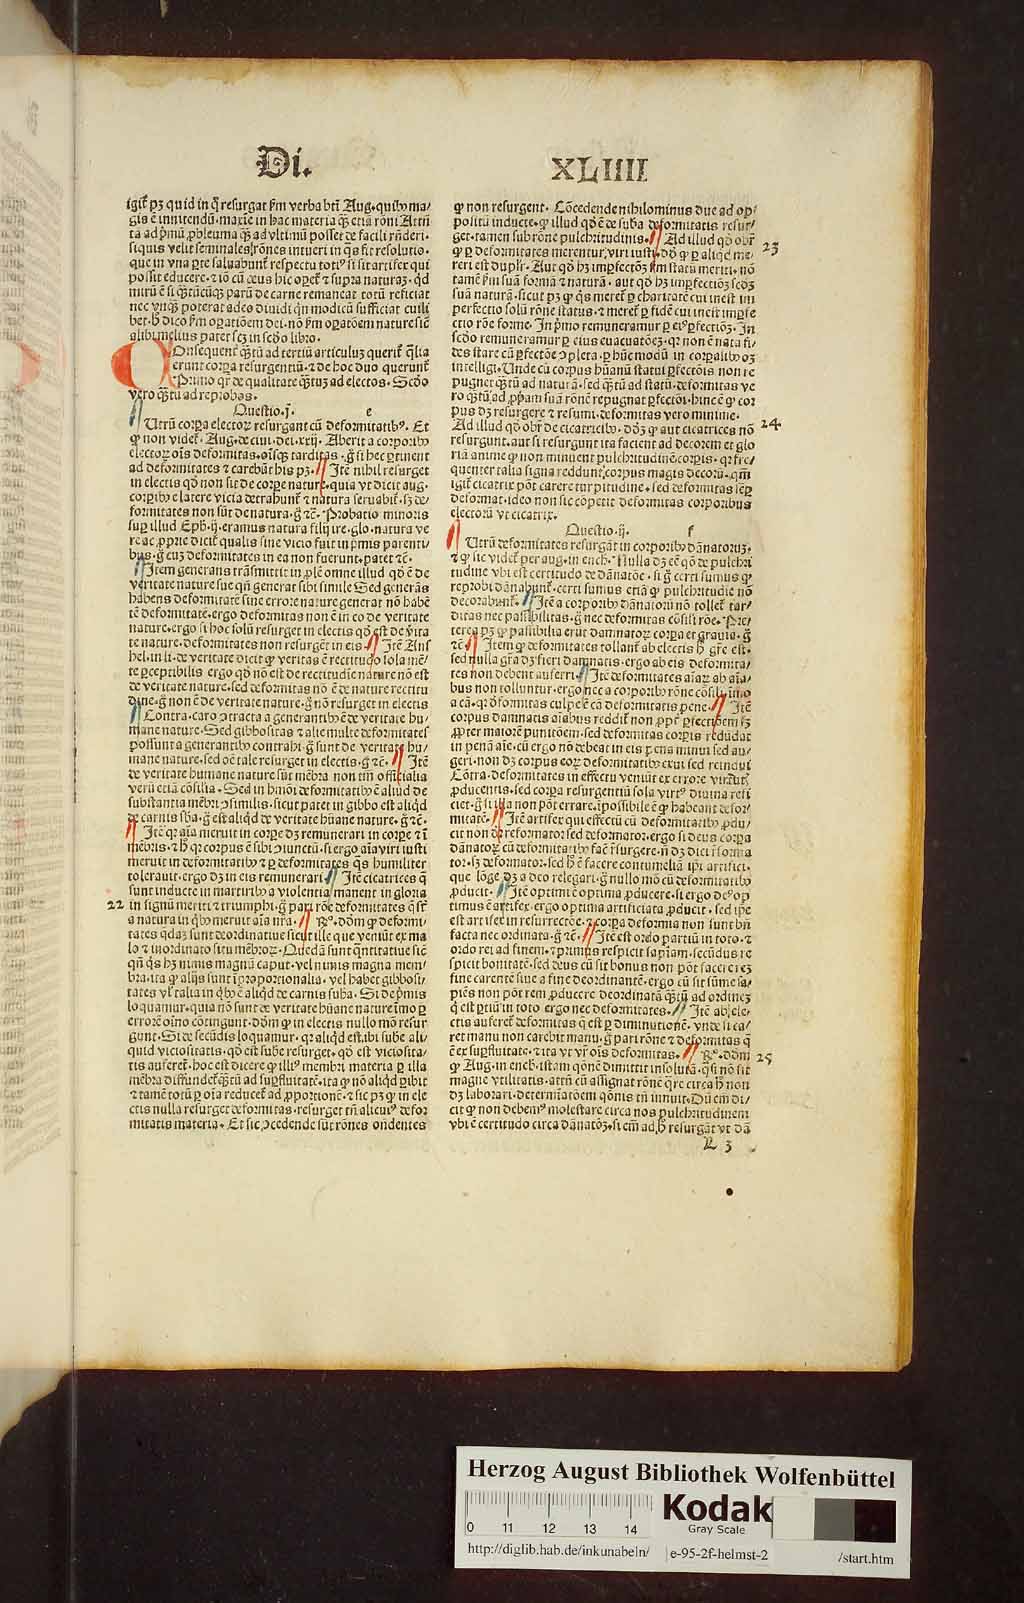 Di. XLIIII
igit᷒ pꝫ quid in q̄ resurgat ẜm verba bt̄i Aug. quibꝰ ma/
gis ē innitendū. maxīe in hac materia qꝫ etiā rōni Attn̄
siquis velit seminales rōnes intueri in q̄s fit resolutio.
que in vna ꝑte saluabunt᷒ respectu totiꝰ ⁊ si sit artifex qui
possit educere.
alibi melius patet scꝫ in scd̄o libro.
COnsequent᷒ qꝫtū ad tertiū articuluꝫ querit᷒ q̄lia
erunt corꝑa resurgentiū. ⁊ de hoc duo querunt᷒
Primo qr̄ de qualitate qꝫtuꝫ ad electos. Scd̄o
vero qꝫtū ad reprobos.
Questio .j. e
Utrū corꝑa electoꝝ resurgant cū deformitatibꝰ. Et
ꝙ non videt᷒. Aug. de ciui. dei .xxij. Aberit a corporibꝰ
electoꝝ oīs deformitas. oīsqꝫ tarditas. g̊ si hec ꝑtinent
ad deformitates ⁊ carebūt his pꝫ. Itē nihil resurget
in electis qd̄ non sit de corꝑe nature. quia vt dicit aug.
corꝑibꝰ e latere vicia detrahunt᷒ ⁊ natura seruabit᷒. sꝫ de/
formitates non sūt de natura. g̊ ⁊c̄. Probatio minoris
suꝑ illud Eph. ij. eramus natura filij ire. glo. natura ve
re ac ꝓprie dicit᷒ qualis sine vicio fuit in pͥmis parenti/
bus. g̊ cuꝫ deformitates in ea non fuerunt. patet ⁊c̄.
Item generans trāsmittit in ꝓlē omne illud qd̄ ē de
veritate nature sue qn̄ generat sibi simile Sed generās
habens deformitatē sine errore nature generat nō habē
tē deformitatē. ergo deformitas non ē in eo de veritate
nature. ergo si hoc solū resurget in electis qd̄ est de vͥita
te nature. deformitates non resurgēt in eis. Itē Ans
hel. in li. de veritate dicit ꝙ veritas ē rectitudo sola mē/
te ꝑceptibilis ergo qd̄ nō est de rectitudīe nature nō est
de veritate nature. sed deformitas nō ē de nature rectitu
dine. g̊ non ē de veritate nature. g̊ nō resurget in electis
Contra. caro ↄtracta a generantibꝰ ē de veritate hu/
mane nature. Sed gibbositas ⁊ alie multe deformitates
possunt a generantibꝰ contrahi. g̊ sunt de veritate hu/
mane nature. sed oē tale resurget in electis. g̊ ⁊c̄. Itē
de veritate humane nature sūt mēbra non tm̄ officialia
verū etiā cōsilia. Sed in hmōi deformitatibꝰ ē aliud de
substantia mēbri ↄsimilis. sicut patet in gibbo est aliqd
de carnis sba. g̊ est aliqd de veritate hūane nature. g̊ ⁊c̄.
Itē qꝛ aīa meruit in corꝑe dꝫ remunerari in corꝑe ⁊ ī
mēbris. ⁊ hͦ qꝛ corpus ē sibi ↄiunctū. si ergo aīa viri iusti
meruit in deformitatibꝰ ⁊ ꝑ deformitates q̄s humiliter
tolerauit. ergo dꝫ in eis remunerari Itē cicatrices q̄
sunt inducte in martiribꝰ a violentia manent in gloria
22 in signū meriti ⁊ triumphi. g̊ pari rōe deformitates q̄ sūt
a natura in qͥbꝰ meruit aīa nr̄a. Rͦ. dōm ꝙ deformi/
tates qdaꝫ sunt deordinatiue sicut ille que veniūt ex ma
lo ⁊ inordinato situ mēbroꝝ. Quedā sunt qn̄titatiue sic̄
qn̄ q̄s hꝫ nimis magnū caput. vel nimis magna mem/
bra. ita ꝙ alijs sunt īproportionalia. vel habet gibbosi/
tates vl talia in qͥbꝰ ē aliqd de carnis suba. Si de pͥmis
loquamur. quia nō sunt de veritate hūane nature īmo ꝑ
errorē oīno cōtingunt. dōm ꝙ in electis nullo mō resur
gunt. Si de secūdis loquamur. qꝛ aliqd est ibi sube ali/
quid viciositatis. qd̄ est sube resurget. qd̄ est viciosita/
tis auferet᷒. hoc est dicere ꝙ illiꝰ membri materia ꝑ illa
mēbra diffundet᷒ qꝫtū ad suꝑfluitatē. ita ꝙ nō aliqd ꝑibit
⁊ tamē totū ꝑ oīa reducet᷒ ad ꝓportionē. ⁊ sic pꝫ ꝙ in ele
ctis nulla resurget deformitas. resurget tn̄ alicuiꝰ defor
mitatis materia. Et sic ↄcedende sūt rōnes ondentes
ꝙ non resurgent. Cōcedende nihilominus due ad op/
positū inducte. ꝙ illud qd̄ ē de suba deformitatis resur/
get. tamen sub rōne pulchritudinis. Ad illud qd̄ obr̄ 23
ꝙ ꝑ deformitates merentur viri iusti. dd̄ ꝙ ꝑ aliqd me/
reri est dupl᷒r. Aut qd̄ hꝫ imꝑfectōꝫ ẜm statū meriti. nō
tamē ẜm suā formā ⁊ naturā. aut qd̄ hꝫ imꝑfectiōꝫ scd̄ꝫ
suā naturā. sicut pꝫ ꝙ q̄s meret᷒ ꝑ charitatē cui inest im
perfectio solū rōne status. ⁊ meret᷒ ꝑ fidē cui inest imꝑfe
ctio rōe forme. In pͥmo remuneramur ꝑ eiꝰ ꝑfectiōꝫ. In
scd̄o remuneramur ꝑ eius euacuatōeꝫ. qꝛ non ē nata fi/
des stare cū ꝑfectōe ↄpleta. ꝑ hūc modū in corꝑalibꝰ oꝫ
intelligi. Unde cū corpus hūanū statui ꝑfectōis non re
pugnet qꝫtū ad naturā. sed qꝫtū ad statū. deformitas ve
ro qꝫtū ad ꝓpͥam suā rōnē repugnat ꝑfectōi. hinc ē ꝙ cor
pus dꝫ resurgere ⁊ resumi. deformitas vero minime.
Ad illud qd̄ obr̄ de cicatricibꝰ. dd̄ꝫ ꝙ aut cicatrices nō 24
resurgunt. aut si resurgunt ita facient ad decorem et glo
riā anime ꝙ non minuent pulchritudinē corꝑis. qꝛ fre/
quenter talia signa reddunt corpus magis decorū. qm̄
igit᷒ cicatrix pōt carere turpitudine. sed deformitas sēꝑ
deformat. ideo non sic cōpetit deformitas corporibus
electorū vt cicatrix.
Questio .ij. f
Utrū deformitates resurgāt in corporibꝰ dānatoruꝫ.
⁊ ꝙ sic videt᷒ per aug. in ench. Nulla dꝫ eē qō de pulchri
tudine vbi est certitudo de dānatōe. si g̊ certi sumus ꝙ
reprobi dānabunt᷒. certi sumus etiā ꝙ pulchritudīe nō
decorabunt᷒. Itē a corporibꝰ dānatorū nō tollet᷒ tar/
ditas nec passibilitas. g̊ nec deformitas cōsili rōe. Pre/
terea pꝫ ꝙ passibilia erūt damnatoꝝ corꝑa et grauia. g̊
⁊c̄. Item ꝙ deformitates tollant᷒ ab electis hͦ gr̄e est.
sed nulla gr̄a dꝫ fieri damnatis. ergo ab eis deformita/
tes non debent auferri. Itē deformitates aīaꝝ ab aīa/
bus non tolluntur. ergo nec a corporibꝰ rōne cōsili. īmo
a cā. qꝛ dēformitas culpe ē cā deformitatis pene. Itē
corpus damnatis aīabus reddit᷒ non ꝓpt᷒ ꝑfectiōem sꝫ
ꝓpter maiorē punitōem. sed deformitas corꝑis redūdat
in penā aīe. cū ergo nō debeat in eis pena minui sed au/
geri. non dꝫ corpus eoꝝ deformitatibꝰ exui sed reindui
Cōtra. deformitates in effectu veniūt ex errore virtut᷒
ꝓducentis. sed corꝑa resurgentiū sola virtꝰ diuina refi
ciet. g̊ si illa non pōt errare. īpossibile ē ꝙ habeant defor/
mitatē. Itē artifex qui effectū cū deformitatibꝰ ꝓdu/
cit non dr̄ reformator sed deformator. ergo si deus corꝑa
dānatoꝝ cū deformitatibꝰ fac̄ resurgere. n̄ dꝫ dici reforma
tor. sꝫ deformator. sed hͦ ē facere contumeliā ip̄i artifici.
que lōge dꝫ a deo relegari. g̊ nullo mō cū deformitatibꝰ
ꝓducit. Itē optimi ē optima ꝓducere. si ergo deꝰ op/
timus ē artifex. ergo optima artificiata ꝓducit. sed ip̄e
est artifex in resurrectōe. ⁊ corꝑa deformia non sunt bn̄
facta nec ordinata. g̊ ⁊c̄. Itē est ordo partiū in toto. ⁊
ordo rei ad finem. ⁊ primus respicit sapīam. secūdus re
spicit bonitatē. sed deus cū sit bonus non pōt facere rez
fine carentē siue a fine deordinantē. ergo cū sit sūme sa/
piēs non pōt rem ꝓducere deordinatā qꝫtū ad ordineꝫ
q̄ est ꝑtiū in toto ergo nec deformitates. Itē ab ele/
ctis auferet᷒ deformitas q̄ est ꝑ diminutionē. vnde si ca/
ret manu non carebit manu. g̊ pari rōne ⁊ deformitas q̄
ē ex suꝑfluitate. ⁊ ita vr̄ vr̄ oīs deformitas. Rͦ. dōm 25
ꝙ Aug. in ench. istam qōnē dimittit insolutā. q̄si nō sit
magne vtilitatis. attn̄ cū assignat rōnē q̄re circa hͦ non
dꝫ laborari. determīatōem qōnis tn̄ innuit. Dū em̄ di/
cit ꝙ non debemꝰ molestare circa nos pulchritudinem
vbi ē certitudo circa dānatōꝫ. si em̄ ad hͦ resurgāt vt dā
L 3
Herzog August Bibliothek Wolfenbüttel
Kodak
Gray Scale
0 11 12 13 14
http://diglib.hab.de/inkunabeln/ e-95-2f-helmst-2 /start.htm